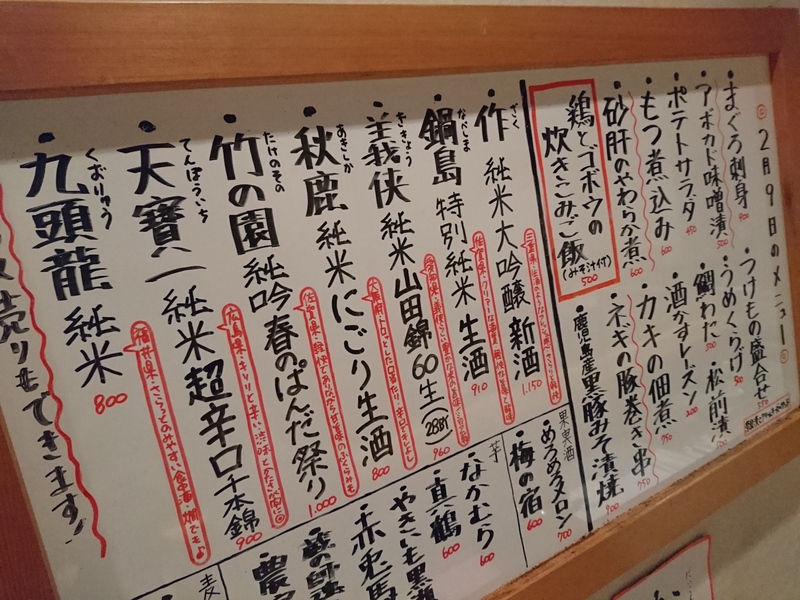 2月9日のメニュー
まぐろ刺身 900
アボカド味噌漬 500
ポテトサラダ 450
もつ煮込み 600
砂肝のやわらか煮 600
つけもの盛合せ 550
うめくらげ 500
鯛わた 500
松前漬 500
酒かすレーズン 200
カキの佃煮
ネギの豚巻き串 750
鹿児島産黒豚みそ漬焼 900
鶏とゴボウの
炊きこみご飯
(みそ汁付)
500
作 ざく 純米大吟醸 新酒 1.150
鍋島 なべしま 特別純米 生酒 910
義侠 ぎきょう 純米山田錦60生(28BY) 960
秋鹿 あきしか 純米にごり生酒 800
竹の園 たけのその 純吟 春のぱんだ祭り 1.000
天寶一 てんぽういち 純米超辛口千本錦 900
福井県・さらっとのみやすい食中酒・燗でも♪
九頭龍 くずりゅう 純米 800
売りもできます!
果実酒
めろめろメロン 700
梅の宿 600
芋
なかむら 600
真鶴 600
やきいも黒瀬
赤兎馬
蔵の師魂
農
麦